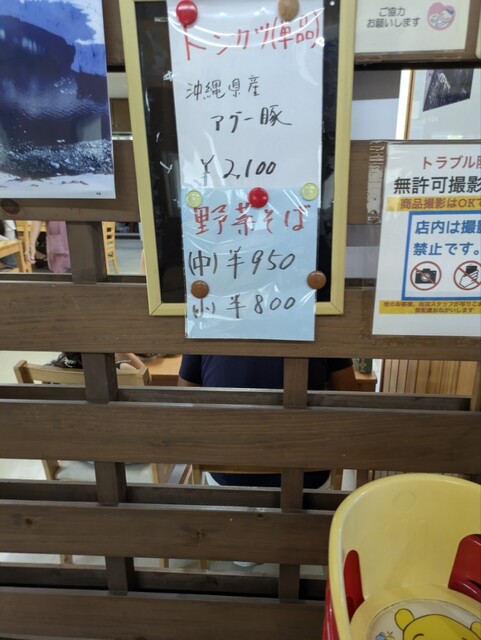 トンカツ(単品)
沖縄県産
アグー豚
¥2,100
野菜そば
(中)¥950
(小)¥800
ご協力
お願いします
トラブル
無許可撮影
商品撮影はOK
店内は撮
禁止です。